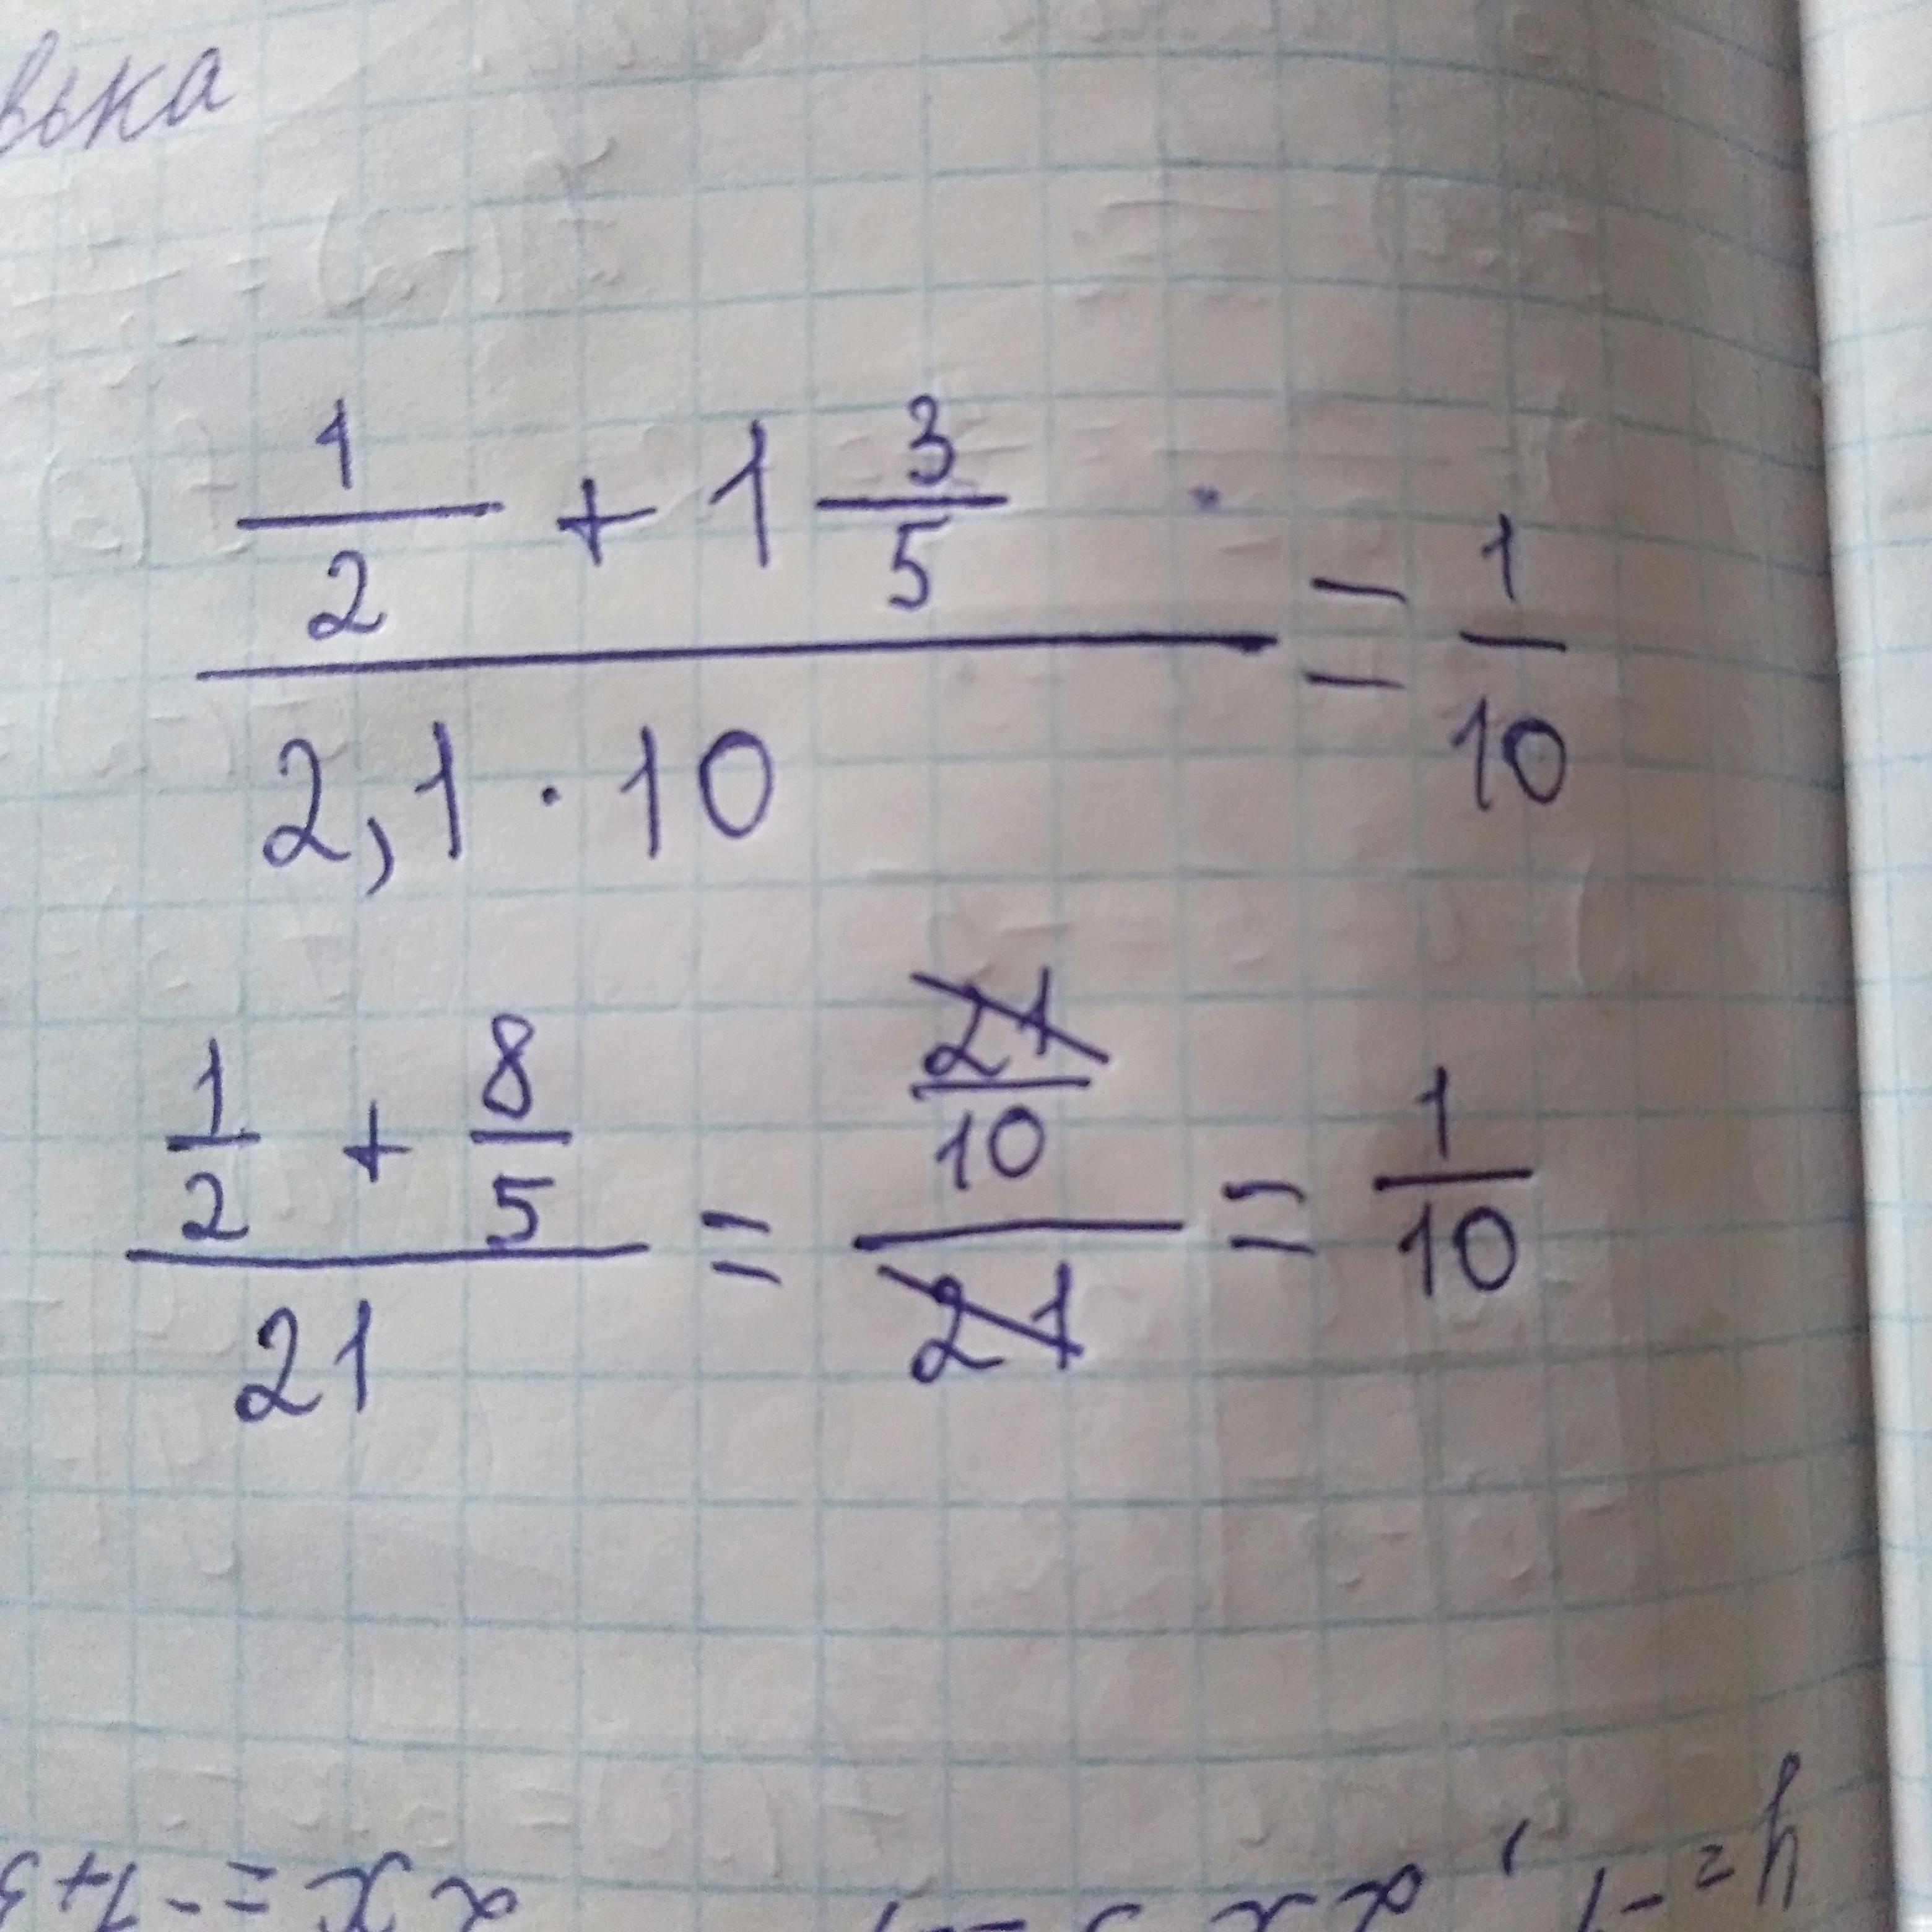 (1/2 + 1 3/5) / (2,1 · 10) = 1/10
(1/2 + 8/5) / 21 = (21/10) / 21 = 1/10